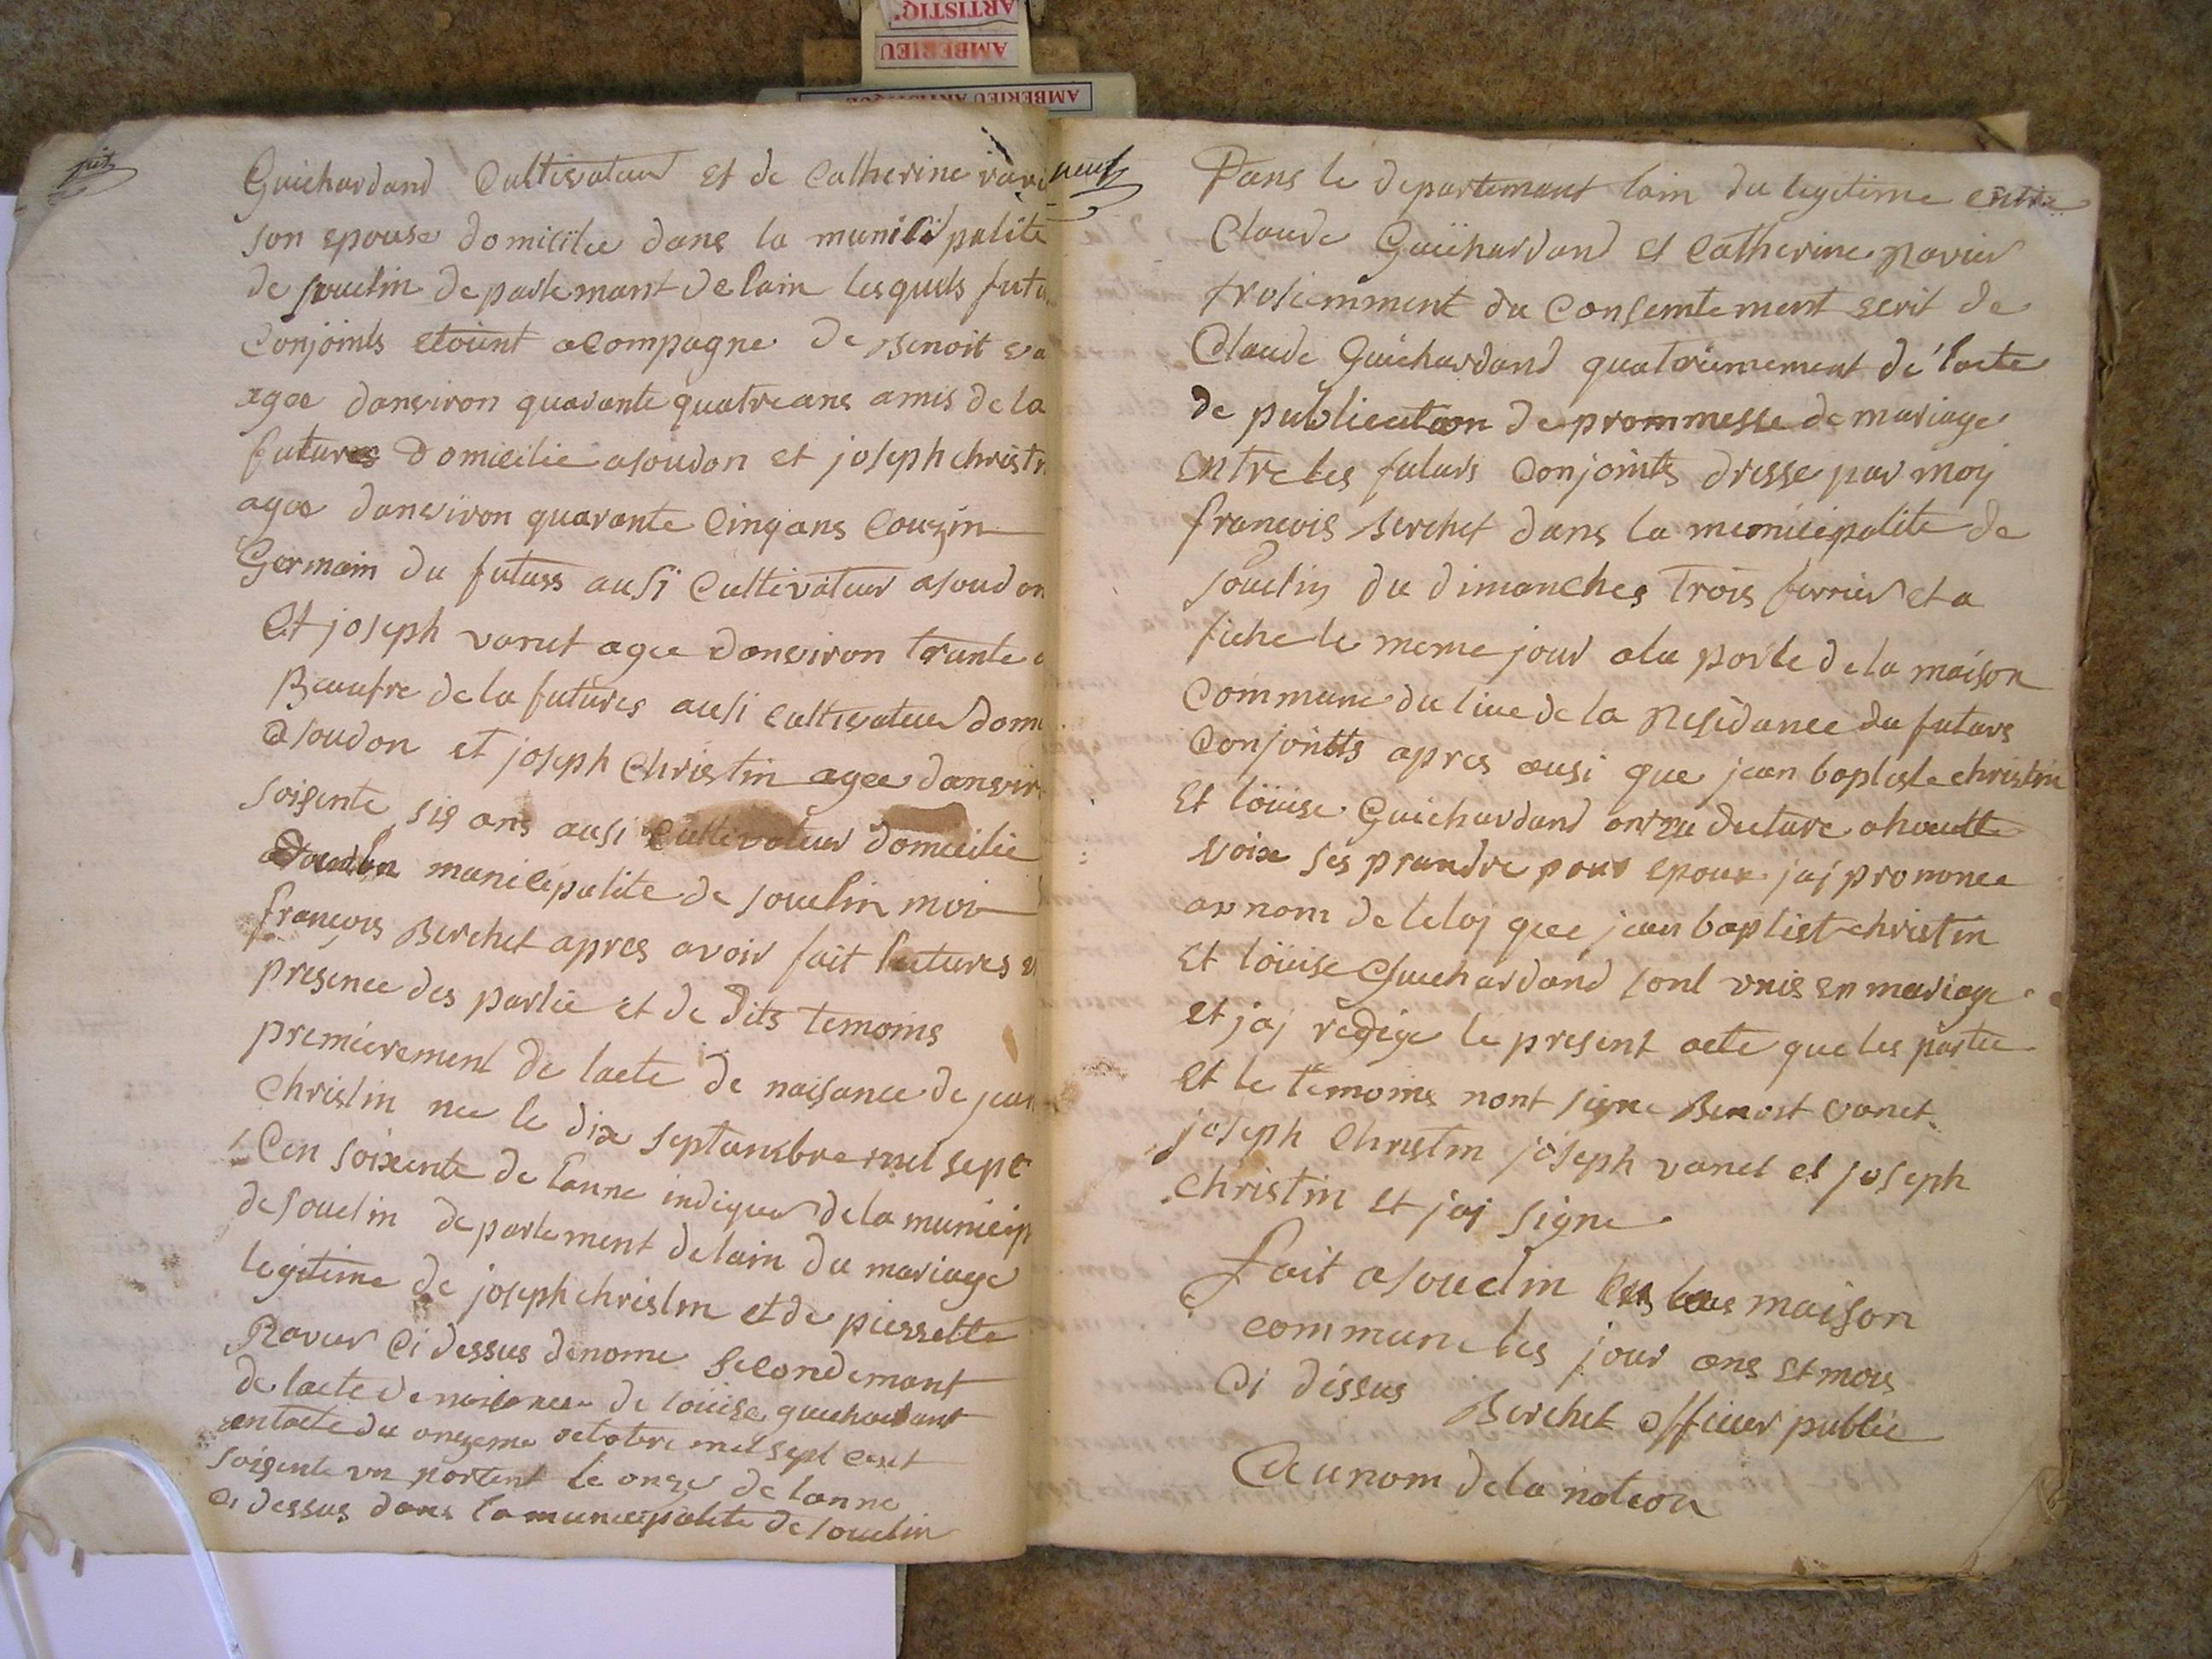 ARTISTIQ
AMBERIEU
AMBERIEU ARTISTIQUE
Guichardand Cultivateur et de Catherine
son epouse domicilee dans la municipalite
de souclin departemant de lain lesquels futu
Conjoints etoint acompagne de Benoit va
agee danviron quarante quatre ans amis de la
futures domicilie asoudon et joseph christ
agee danviron quarante Cinq ans Couzin
Germain du futurs ausi Cultivateur asoudon
Et joseph vanet agee danviron trante
Beaufre de la futures ausi cultivateur dom
asoudon et joseph christin agee danvir
soisente sis ans ausi Cultivateur domicilie
municipalite de souclin moi
francois Berchet apres avoir fait lectures
presence des partie et de dits temoins
premierement de lacte de naisance de jean
christin nee le dix septambre mil sept
Cen soixente de lanne indique de la municip
de souclin departement delain du mariage
legitime de joseph christin et de pierrette
Ravier Ci dessus denome secondemant
de lacte de naisance de loüise guichardant
en lacte du onzeme octobre mil sept cent
soisente un portent le onze de lanne
Ci dessus dans la municipalite de souclin
neuf
Dans le departemant lain du legitime entre
Claude Guichardand et Catherine ravier
trosiemment du Consentement ecrit de
Claude Guichardand quatriemement de lacte
de publication de prommesse de mariage
entre les futurs Conjoints dresse par moy
francois Berchet dans la municipalite de
souclin du dimanches trois fevrier et a
fiche le meme jour ala porte de la maison
Commune du liue de la Residance du futurs
Conjoints apres ausi que jean baptiste christin
Et loüise Guichardand ont declare ahautte
voix ses prandre pour epoux jaj prononce
aunom de leloj que jean baptist christin
et loüise Guichardand sont unis en mariage
et jaj redige le present acte que les partie
et le temoins nont signe Benoit vanet
joseph Christin joseph vanet et joseph
christin et jaj signe
fait asouclin maison
commune les jour ans et mois
Ci dessus Berchet officier public
Au nom de la nation